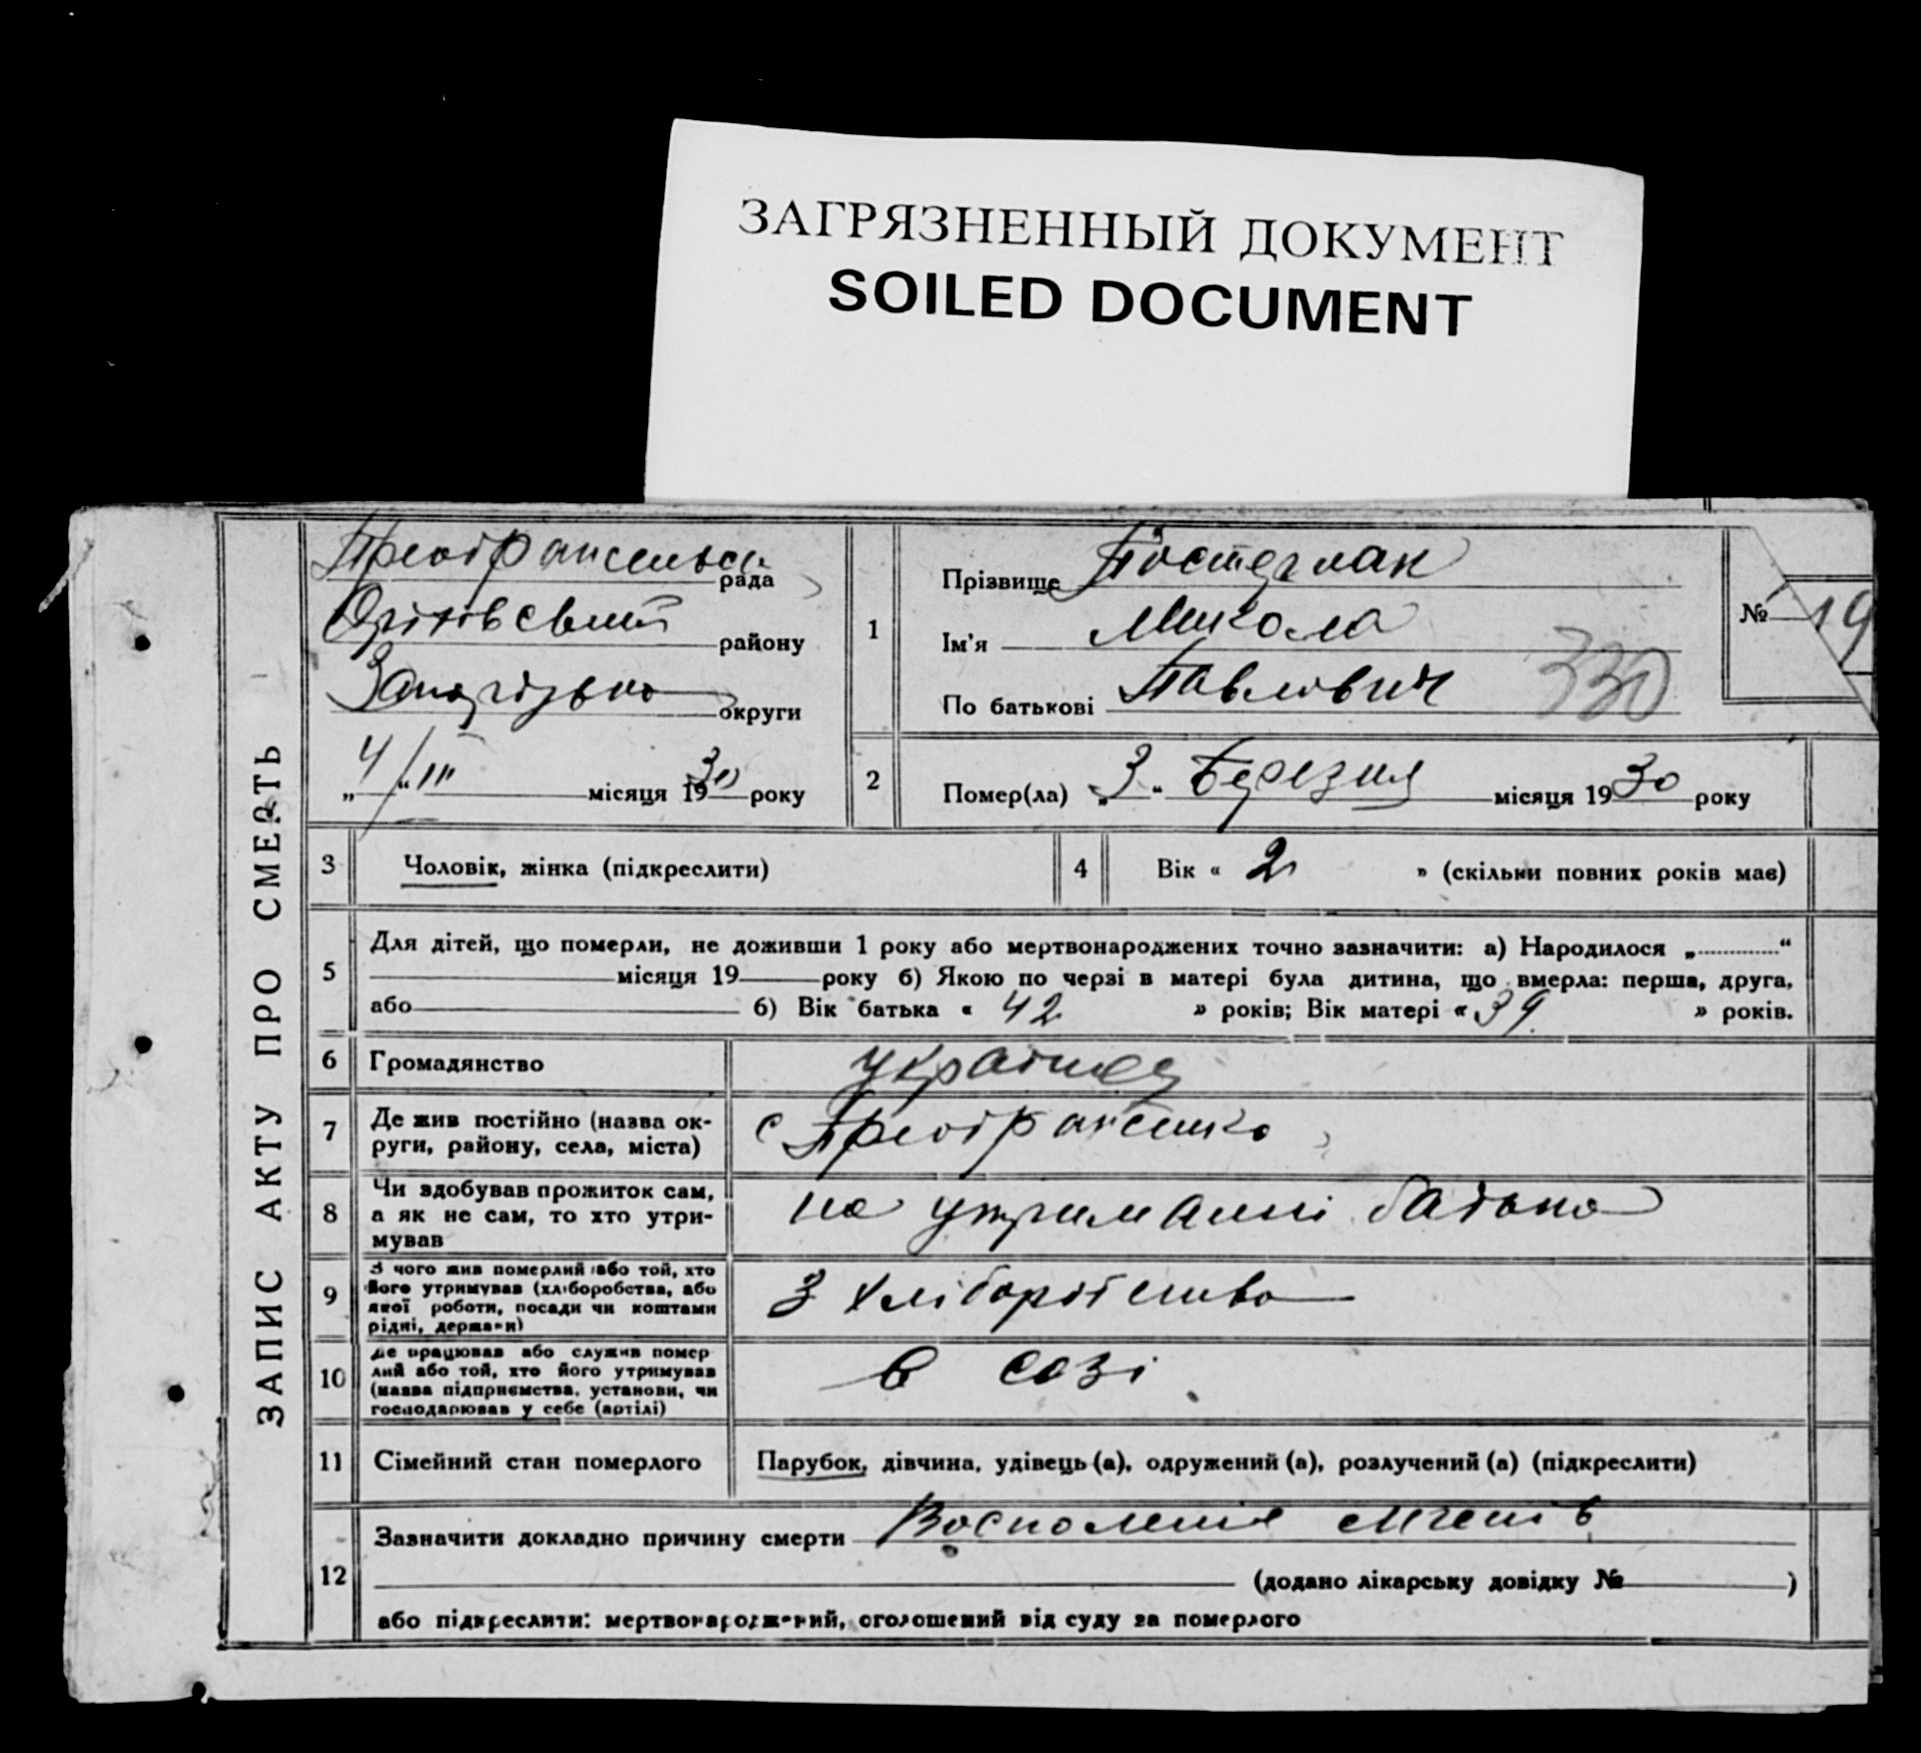 ЗАГРЯЗНЕННЫЙ ДОКУМЕНТ
SOILED DOCUMENT
ЗАПИС АКТУ ПРО СМЕРТЬ
рада
Оріхівський району
округи
4/III місяця 1930 року
1
Прізвище
Ім'я Микола
По батькові Павлович
330
№ 19
2
Помер(ла) „3“ Березня місяця 1930 року
3 Чоловік, жінка (підкреслити)
4 Вік « 2 » (скільки повних років має)
5 Для дітей, що померли, не доживши 1 року або мертвонароджених точно зазначити: а) Народилося „ “
місяця 19 року б) Якою по черзі в матері була дитина, що вмерла: перша, друга,
або б) Вік батька « 42 » років; Вік матері « 39 » років.
6 Громадянство українец
7 Де жив постійно (назва ок-
руги, району, села, міста)
с
8 Чи здобував прожиток сам,
а як не сам, то хто утри-
мував
на утриманні батька
9 З чого жив померлий або той, хто
його утримував (хліборобства, або
якої роботи, посади чи коштами
рідні, держави)
З хліборобства
10 Де працював або служив помер
лий або той, хто його утримував
(назва підприємства, установи, чи
господарював у себе (артілі)
в созі
11 Сімейний стан померлого Парубок, дівчина, удівець (а), одружений (а), розлучений (а) (підкреслити)
12 Зазначити докладно причину смерти
(додано лікарську довідку № )
або підкреслити: мертвонароджений, оголошений від суду за померлого